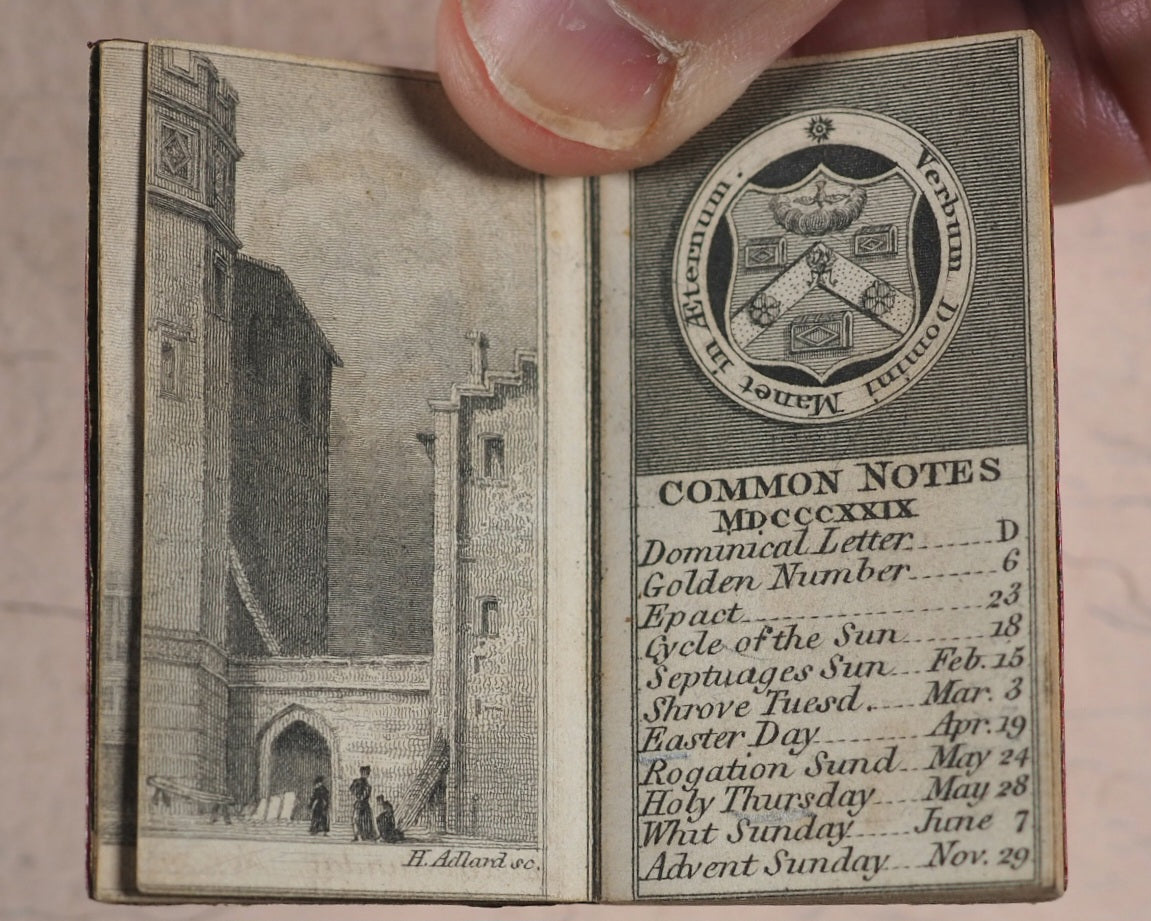 H. Adlard sc.
Verbum Domini Manet in Æternum.
COMMON NOTES
MDCCCXXIX
Dominical Letter ........ D
Golden Number ........ 6
Epact ........ 23
Cycle of the Sun ........ 18
Septuages Sun ... Feb. 15
Shrove Tuesd. .... Mar. 3
Easter Day ........ Apr. 19
Rogation Sund ... May 24
Holy Thursday .... May 28
Whit Sunday ..... June 7
Advent Sunday .... Nov. 29